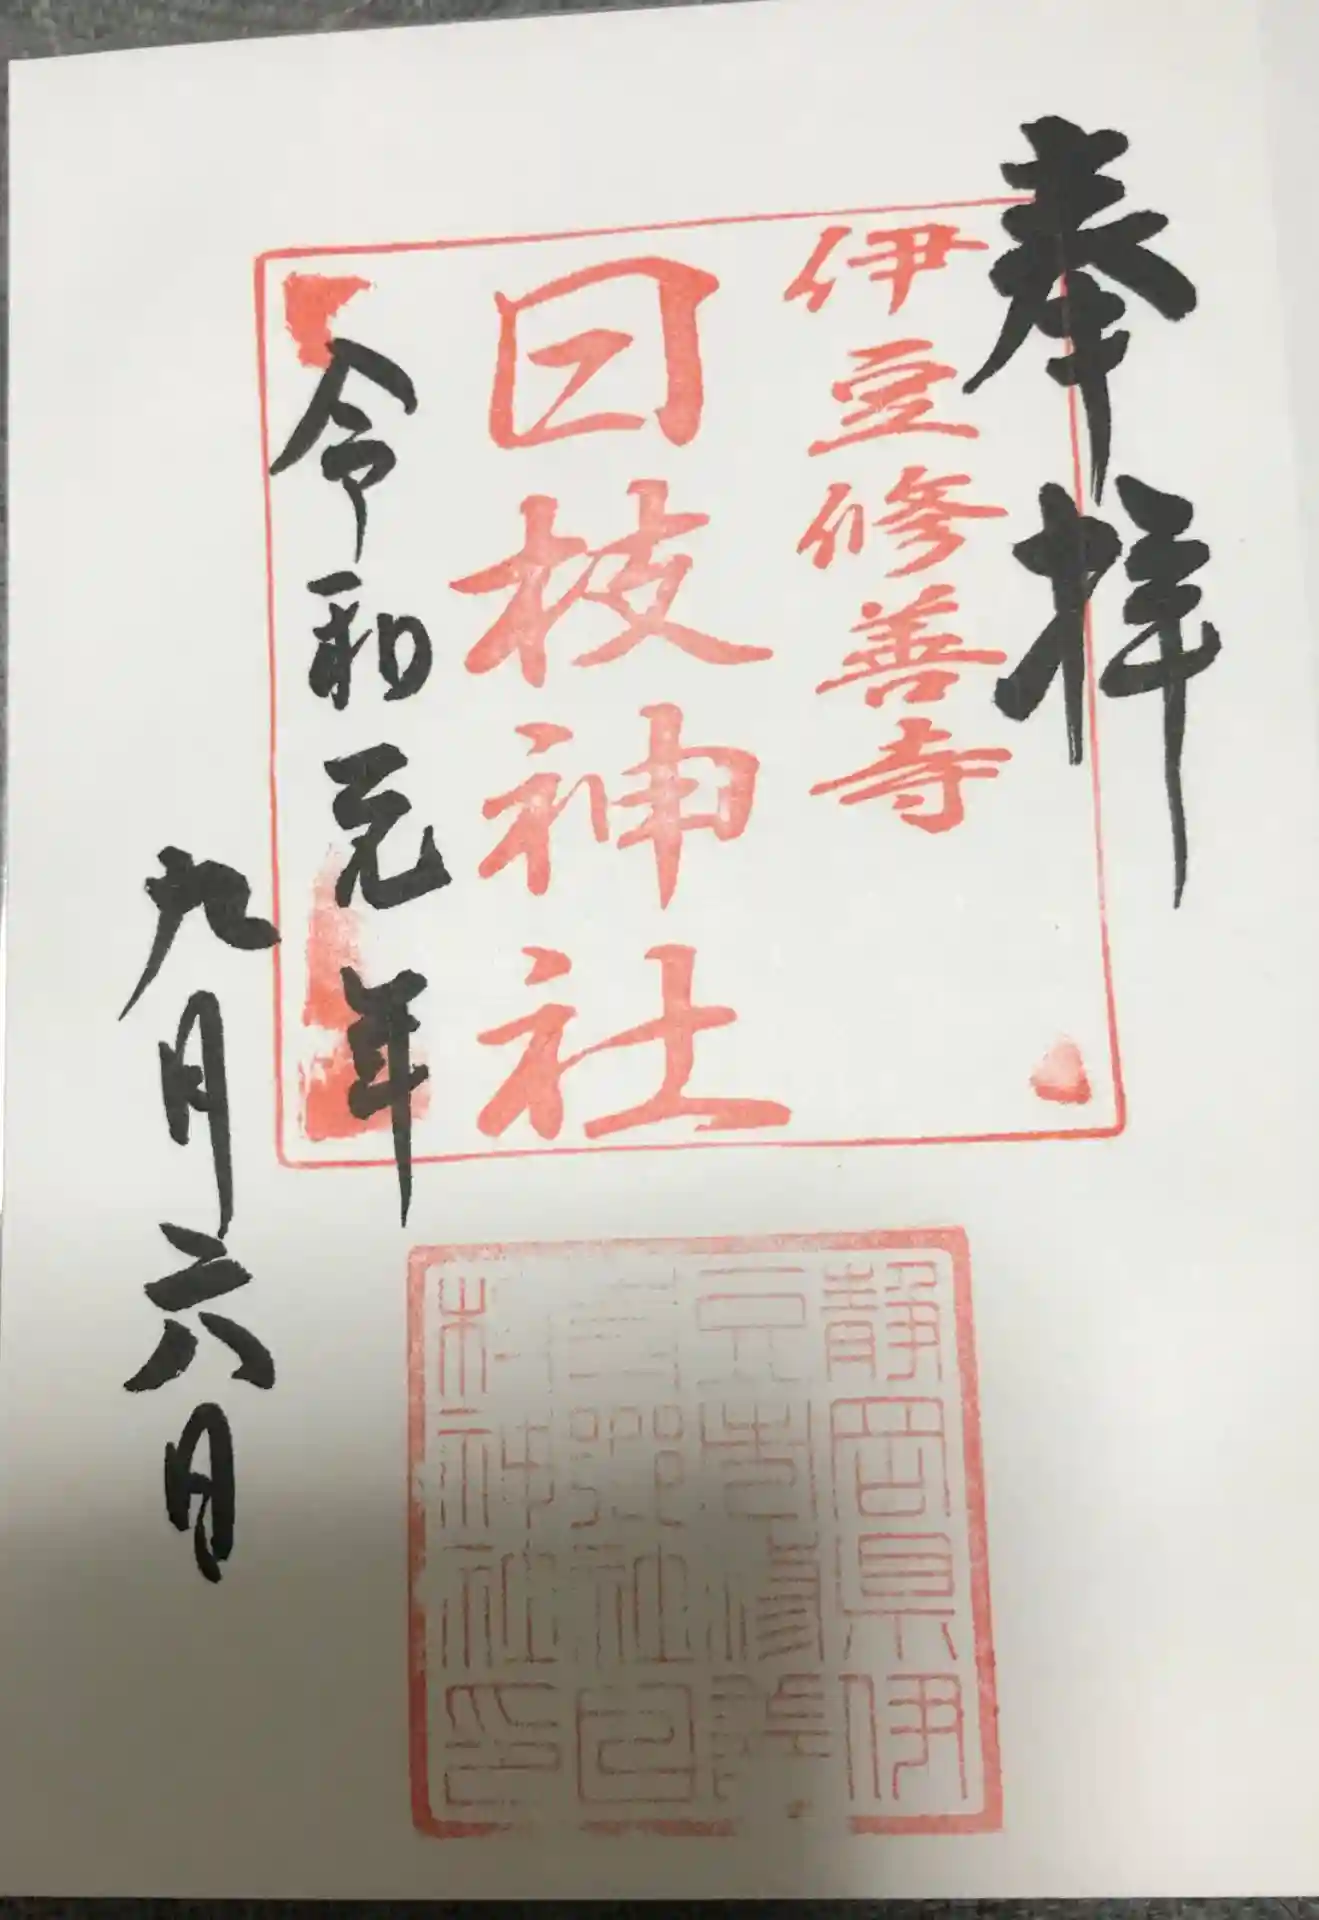 奉拝
伊豆修善寺
日枝神社
令和元年
九月六日
静岡県伊
豆市修善
郷社日
枝神社印